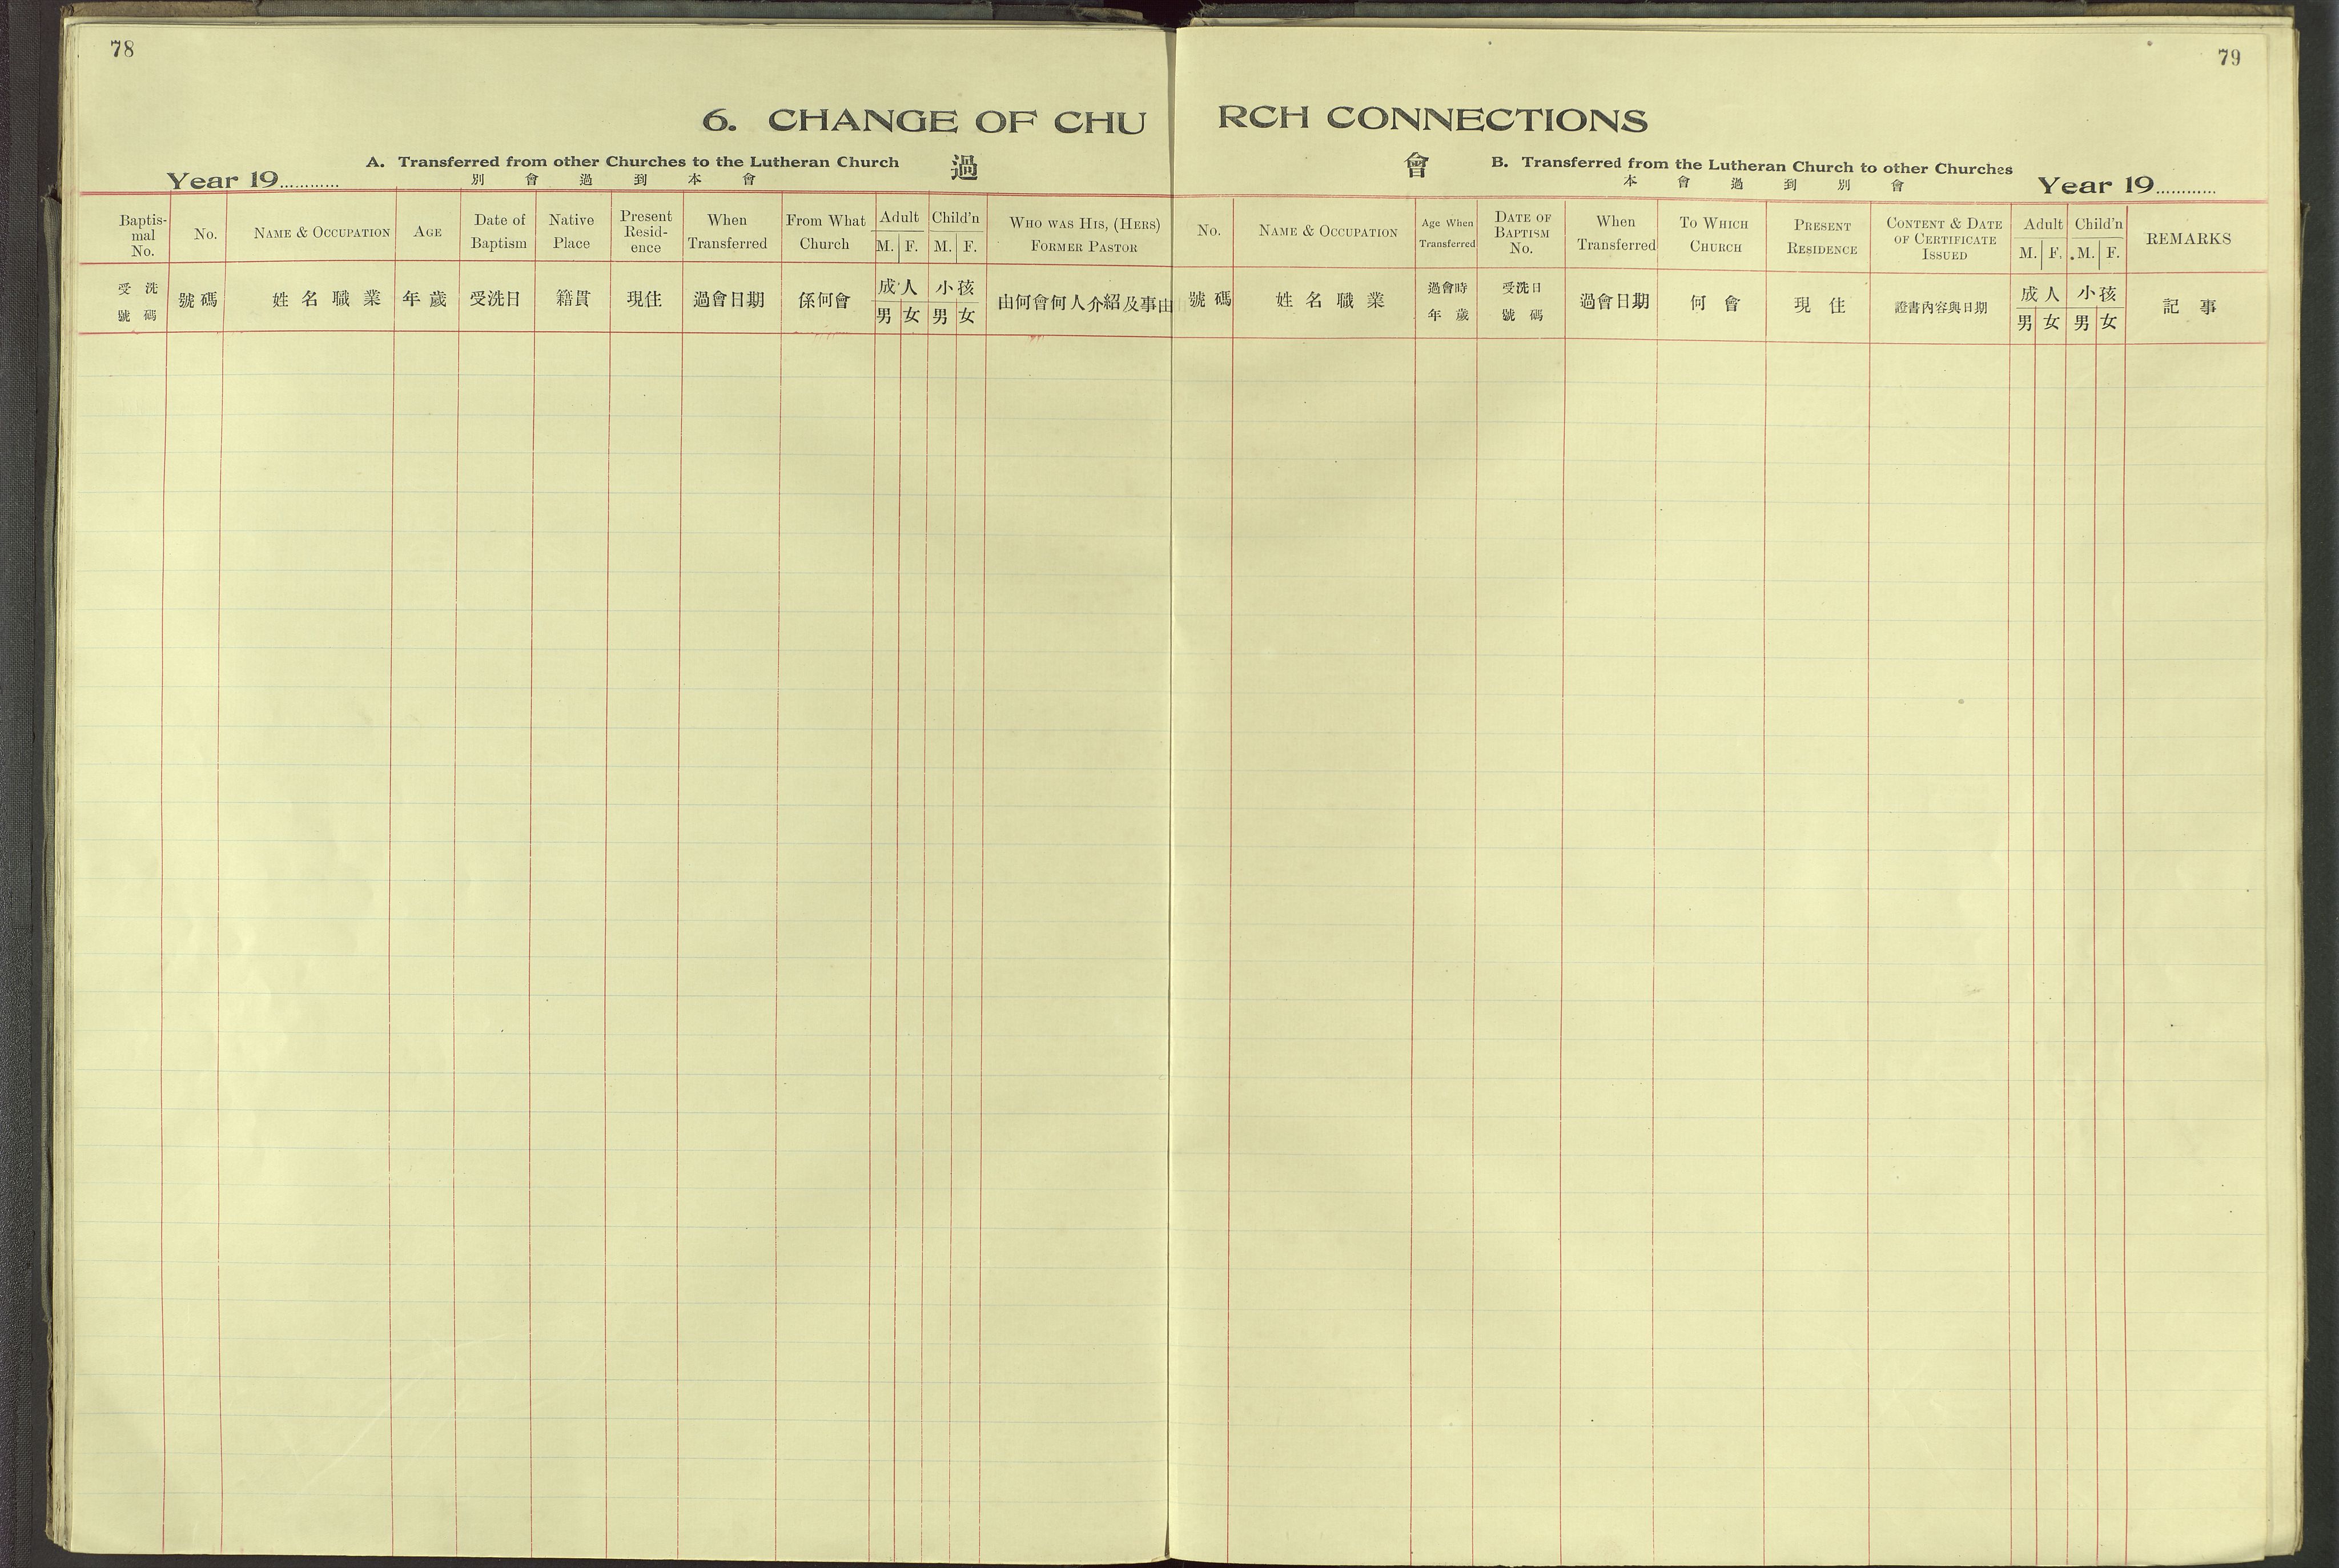 78
6. CHANGE OF CHU
A. Transferred from other Churches to the Lutheran Church 過
Year 19............ 別 會 過 到 本 會
Baptis-mal No. No. NAME & OCCUPATION AGE Date of Baptism Native Place Present Resid-ence When Transferred From What Church Adult M. F. Child'n M. F. WHO WAS HIS, (HERS) FORMER PASTOR
受洗號碼 號碼 姓名職業 年歲 受洗日 籍貫 現住 過會日期 係何會 成人 男 女 小孩 男 女 由何會何人介紹及事由
79
RCH CONNECTIONS
會 B. Transferred from the Lutheran Church to other Churches
本 會 過 到 別 會 Year 19............
No. NAME & OCCUPATION Age When Transferred DATE OF BAPTISM No. When Transferred TO WHICH CHURCH PRESENT RESIDENCE CONTENT & DATE OF CERTIFICATE ISSUED Adult M. F. Child'n M. F. REMARKS
號碼 姓名職業 過會時年歲 受洗日號碼 過會日期 何會 現住 證書內容與日期 成人 男 女 小孩 男 女 記事